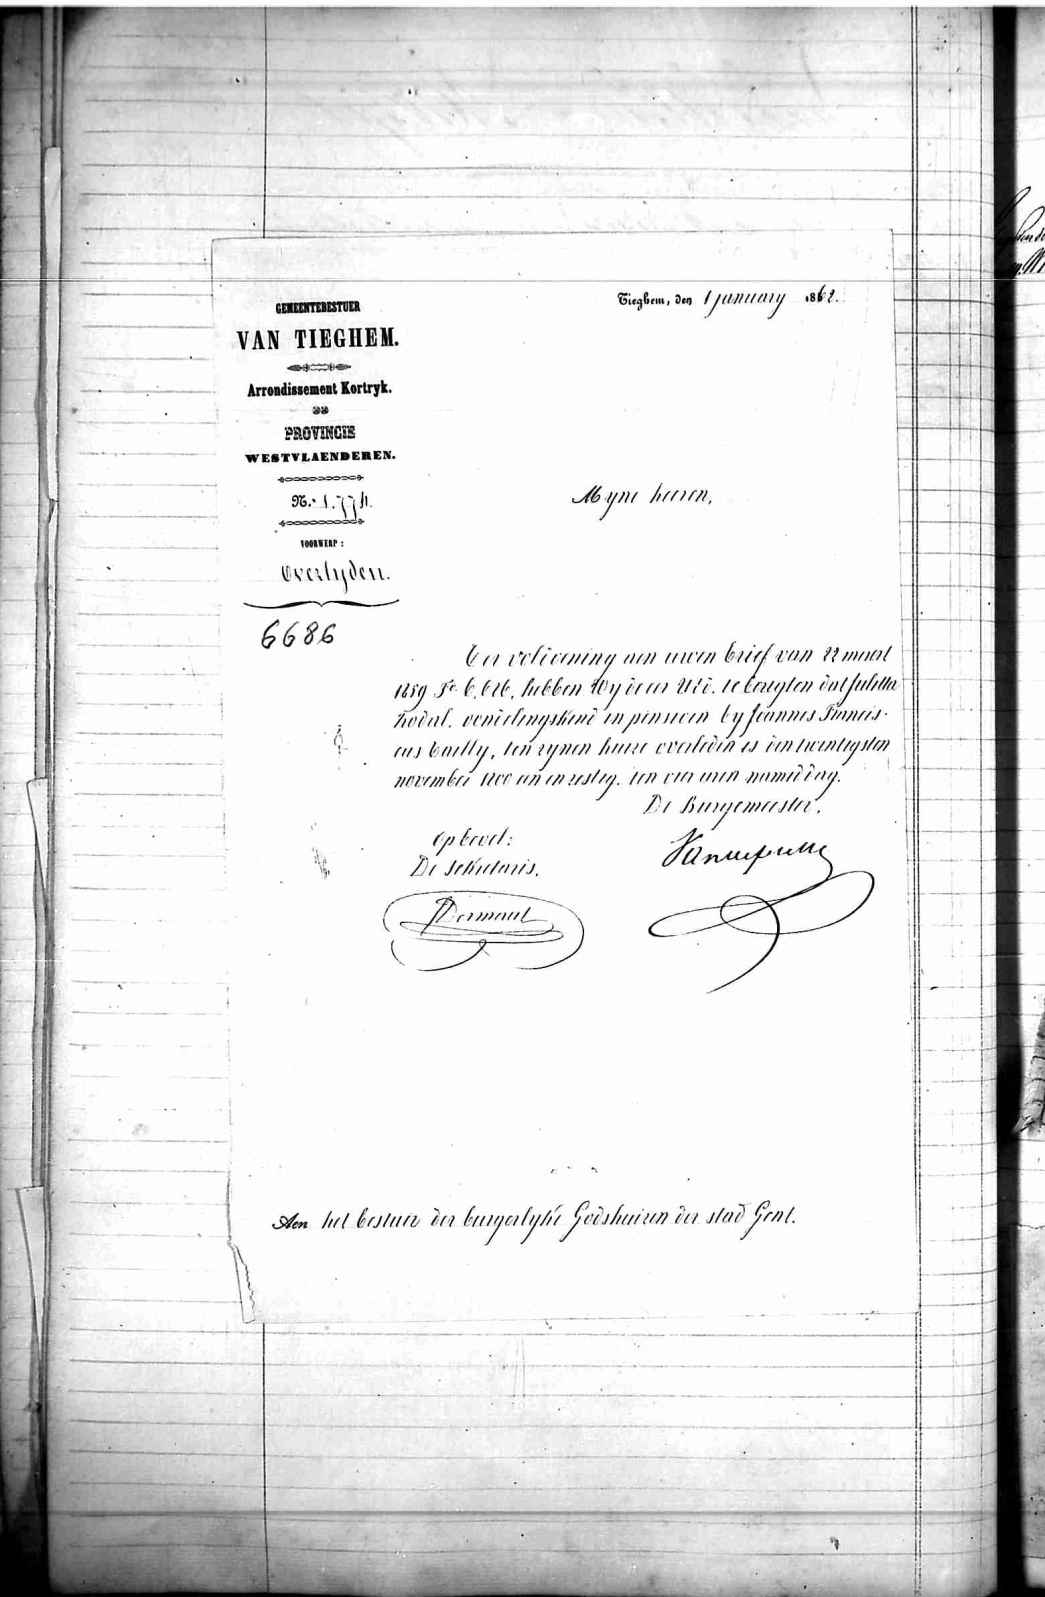 GEMEENTEBESTUER
VAN TIEGHEM.
Arrondissement Kortryk.
PROVINCIE
WESTVLAENDEREN.
N.° 1.774.
VOORWERP :
Overlyden.
6686
Tieghem, den 1 january 1862.
Myne heeren,
Ter voldoening aen uwen brief van 22 maert
1859 N° 6,626, hebben wy de eer Ued. te berigten dat Juletta
vondelingskind en pensioen by Joannes Francis-
cus Bailly, ten zynen huize overleden is den twintigsten
november 1800 een en zestig, ten vier uren namiddag.
De Burgemeester,
Op bevel:
De Sekretaris,
Dermaut
Aen het bestuer der burgerlyke Godshuizen der stad Gent.